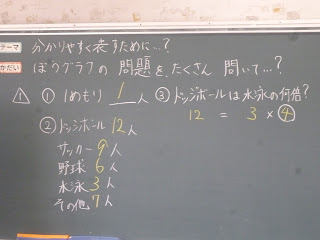 テーマ 分かりやすく表すために…?
かだい ぼうグラフの問題を、たくさん問いて…?
△1 ① 1めもり 1人
② ドッジボール 12人
サッカー 9人
野球 6人
水泳 3人
その他 7人
③ ドッジボールは水泳の何倍?
12 = 3 × ④